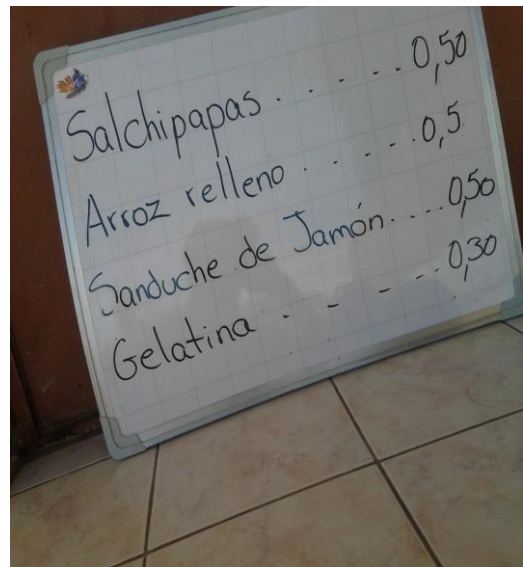 Salchipapas . . . . . . 0,50
Arroz relleno . . . . . 0,5
Sanduche de Jamón. . . . 0,50
Gelatina . - - - . . 0,30